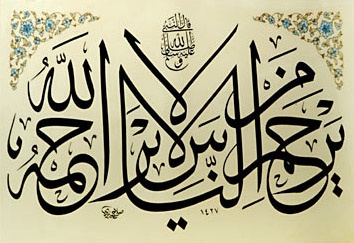 قال النبي
صلى الله عليه وسلم
من لا يرحم الناس لا يرحمه الله
١٤٢٧